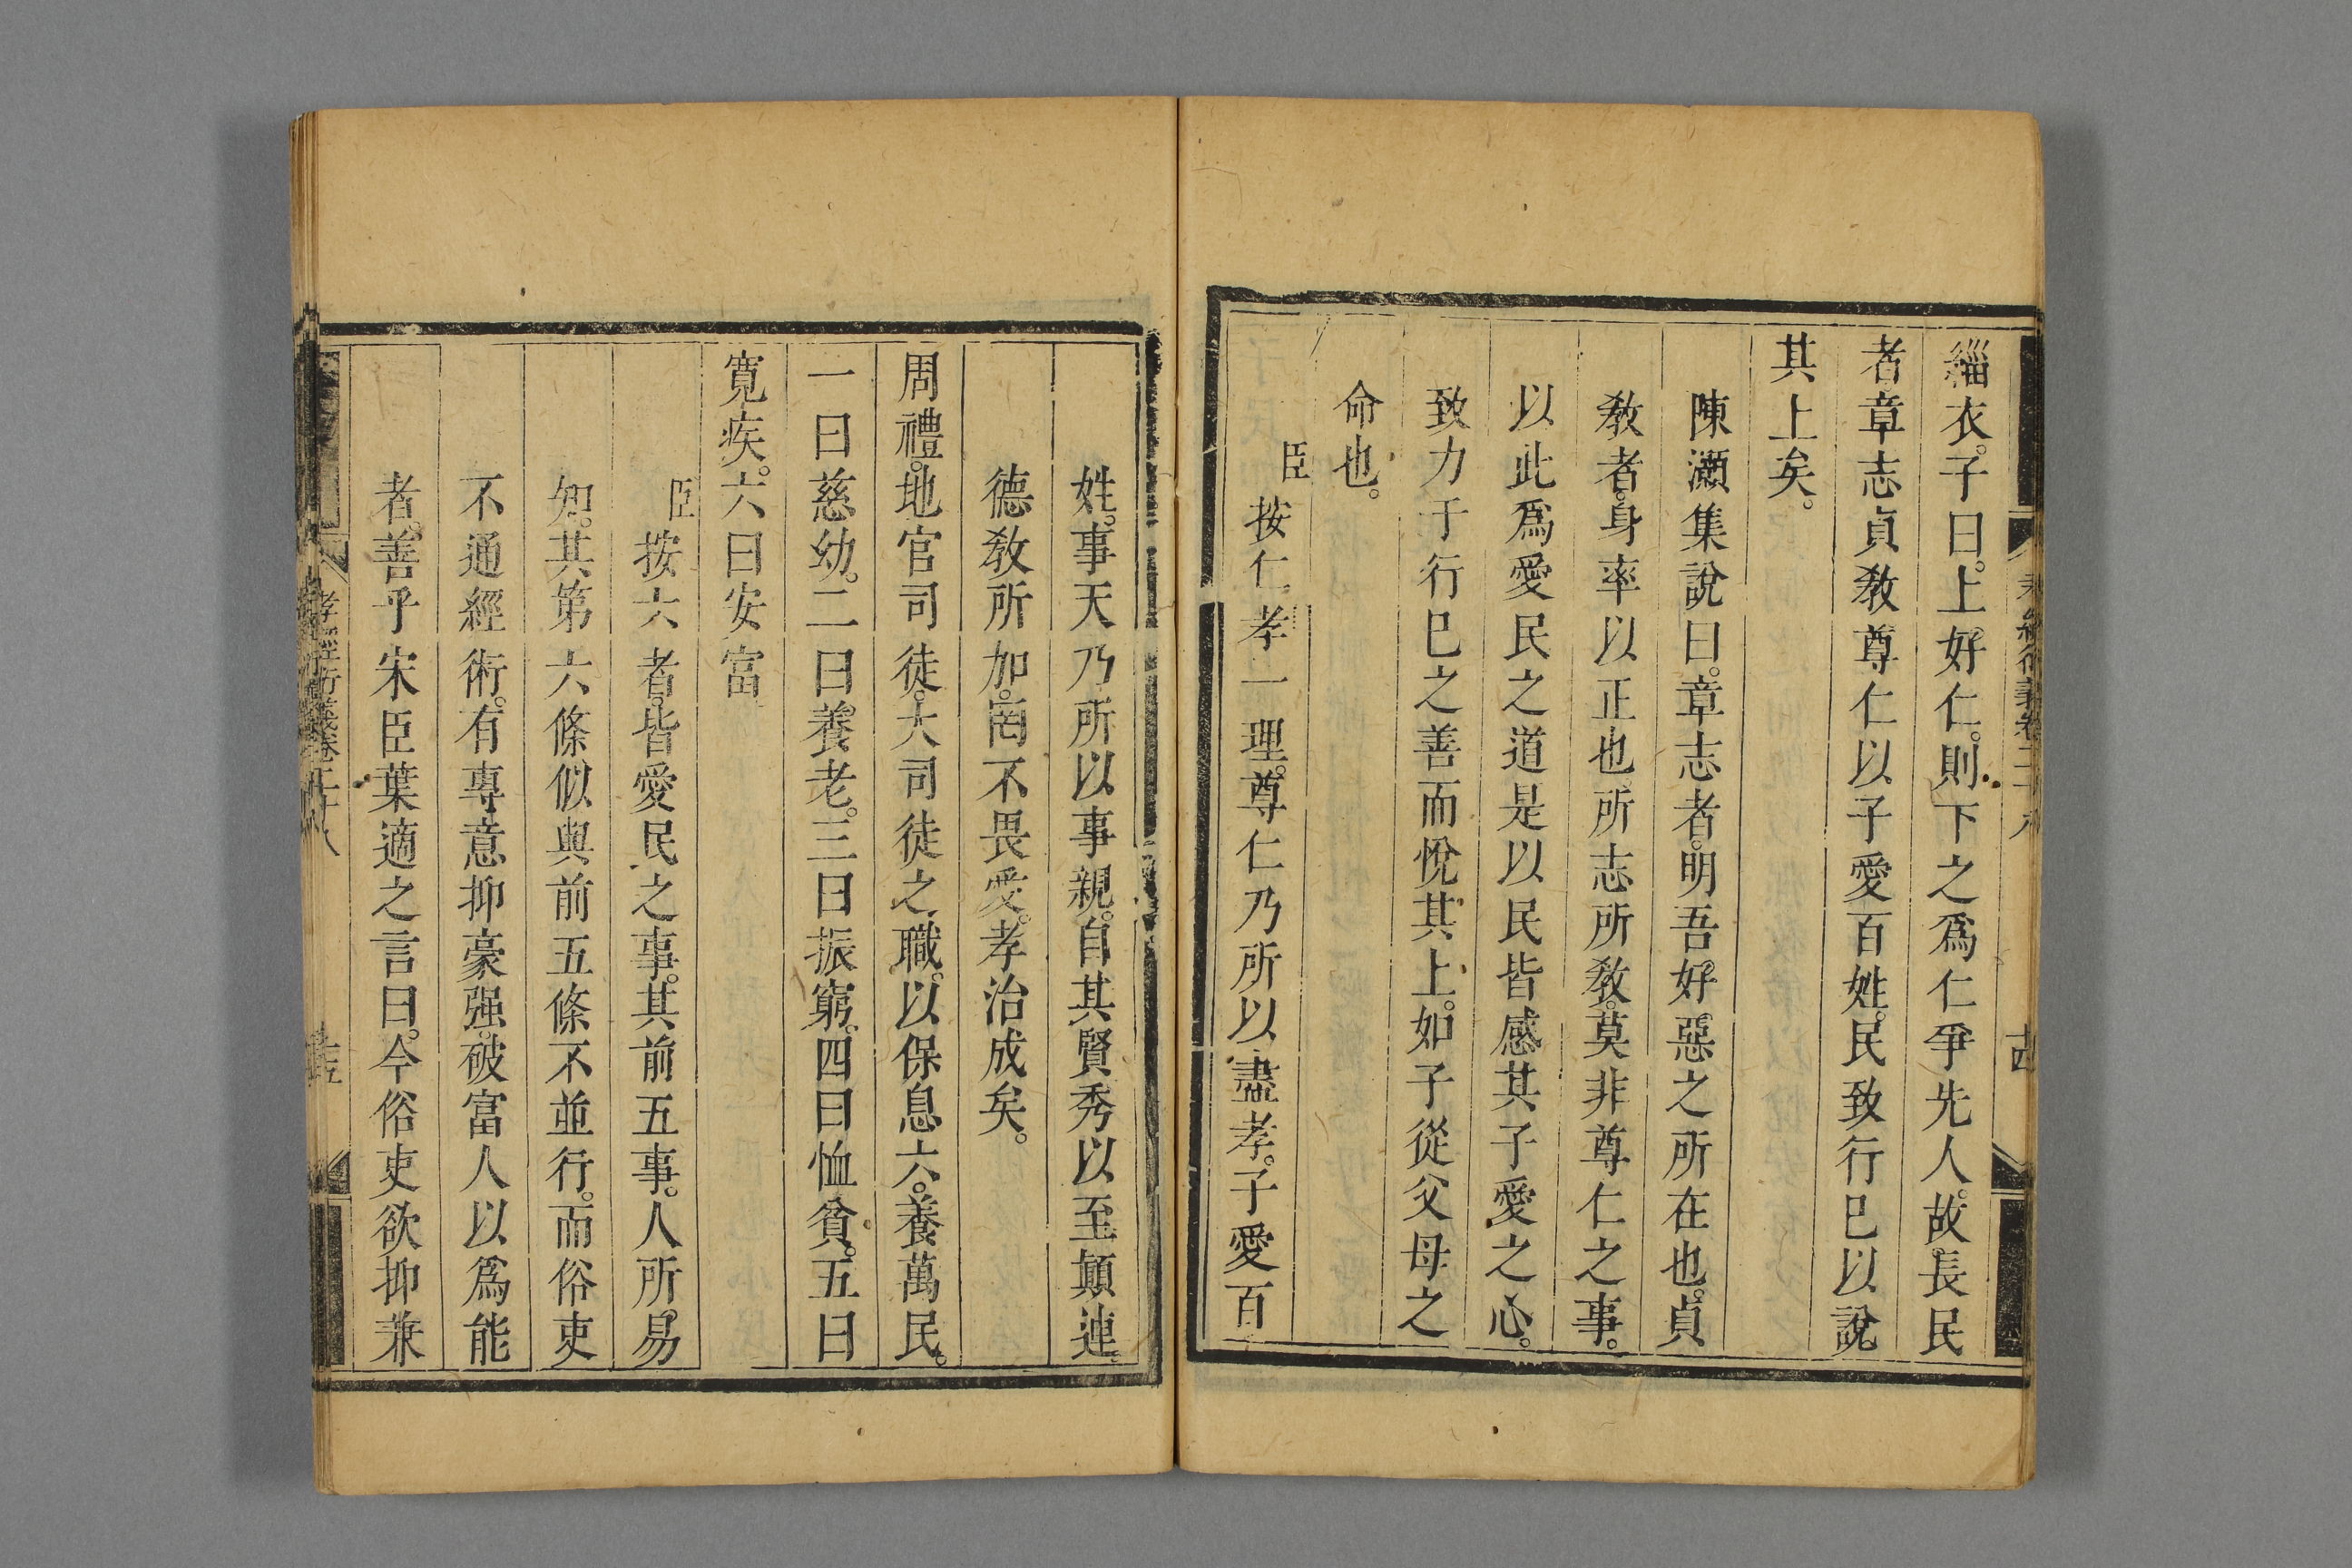 緇衣。子曰。上好仁。則下之爲仁爭先人。故長民
者章志貞敎尊仁以子愛百姓。民致行已以說
其上矣。
陳灝集說曰。章志者。明吾好惡之所在也。貞
敎者。身率以正也所志所敎。莫非尊仁之事。
以此爲愛民之道是以民皆感其子愛之心。
致力于行已之善而悅其上。如子從父母之
命也。
臣按仁孝一理。尊仁乃所以盡孝。子愛百
姓。事天乃所以事親。自其賢秀以至顛連
德敎所加。罔不畏愛。孝治成矣。
周禮。地官司徒。大司徒之職。以保息六。養萬民。
一曰慈幼。二曰養老。三曰振窮。四曰恤貧。五曰
寬疾。六曰安富
臣按六者。皆愛民之事。其前五事。人所易
知。其第六條似與前五條不並行。而俗吏
不通經術。有專意抑豪强。破富人以爲能
者。善乎宋臣葉適之言曰。今俗吏欲抑兼
孝經衍義卷二十八